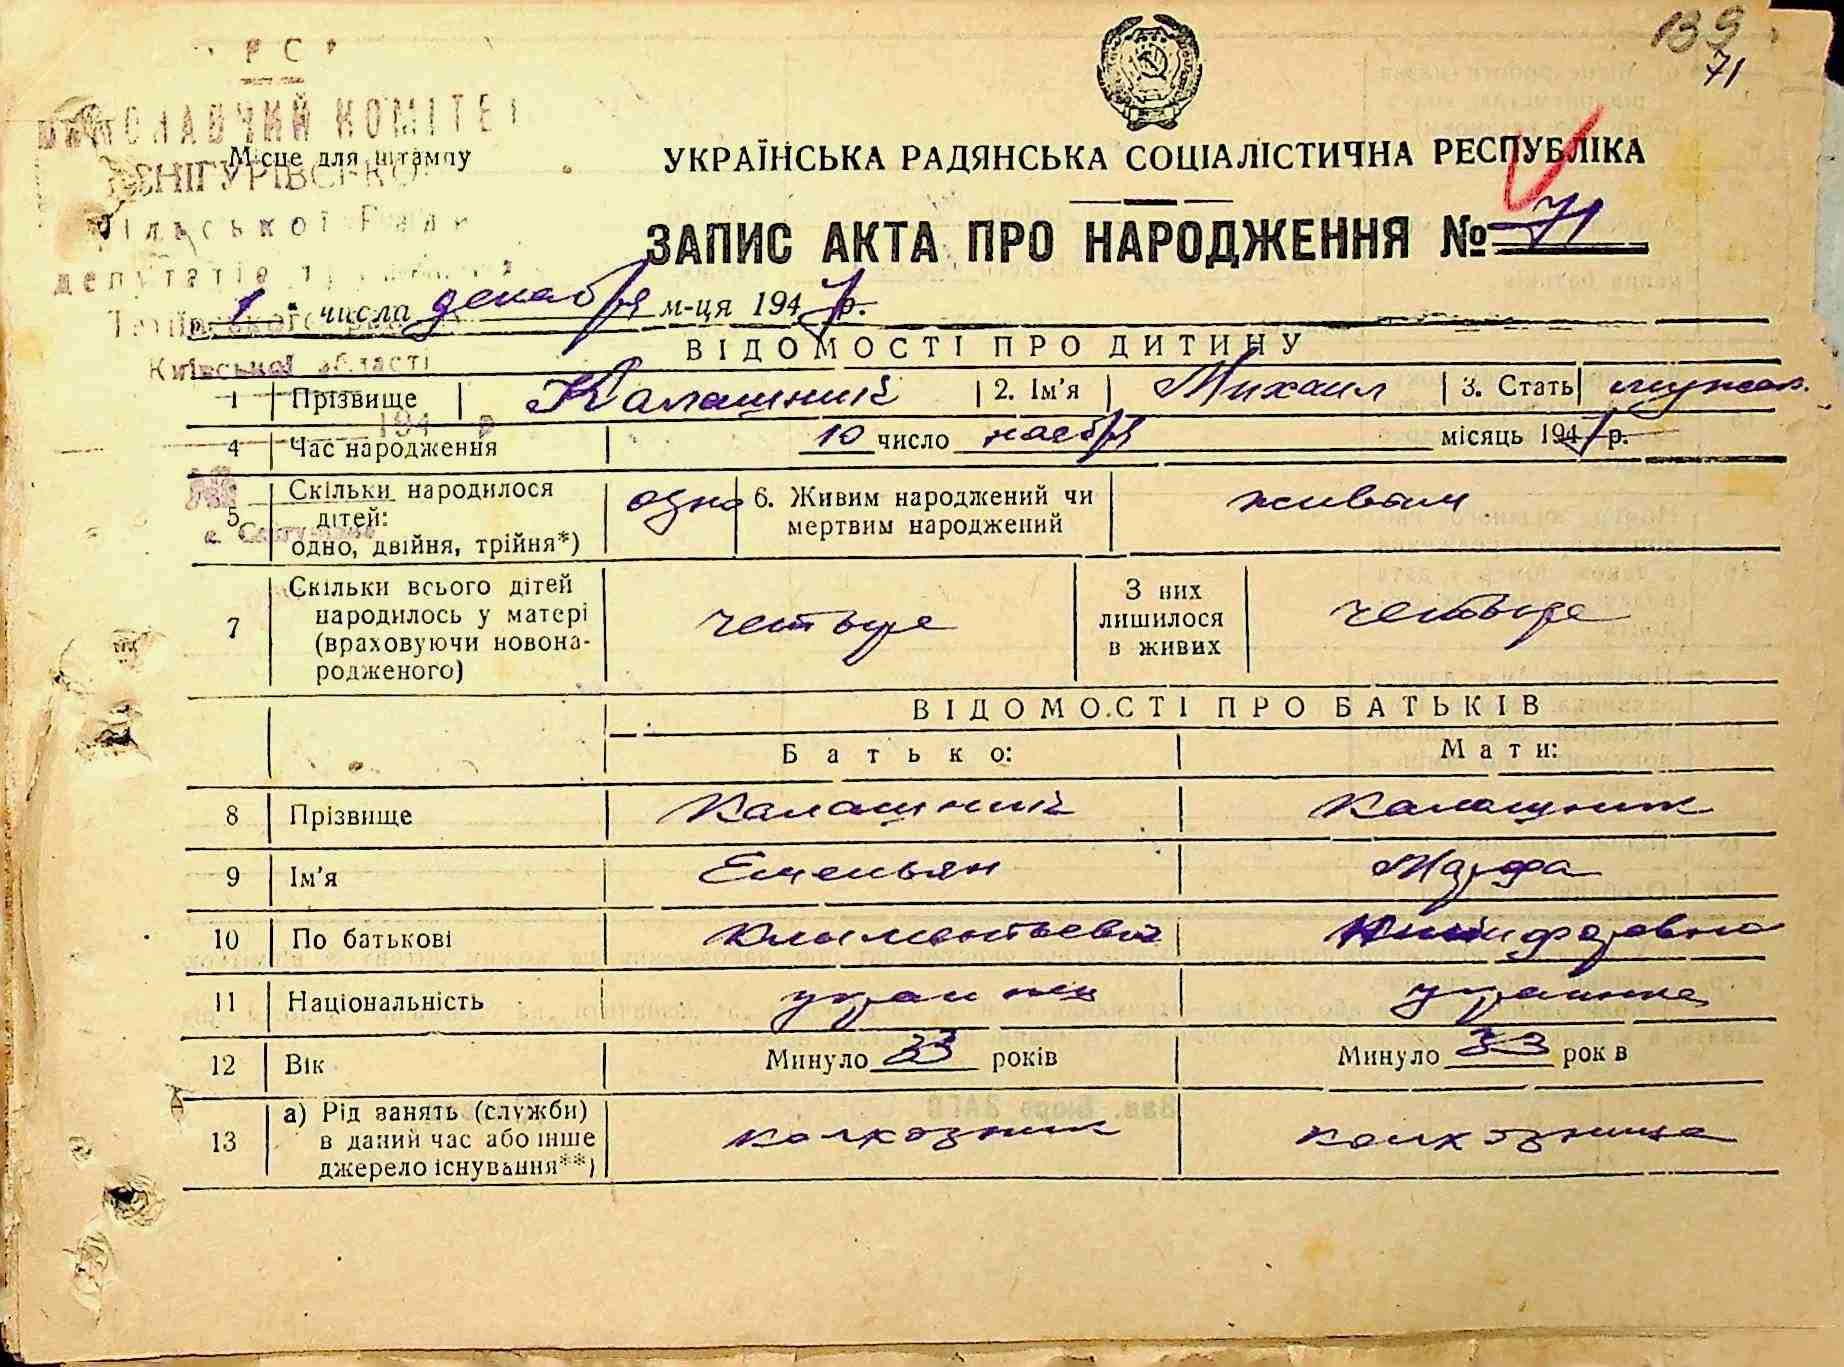 139
71
Р С Р
ВИКОНАВЧИЙ КОМІТЕТ
Місце для штампу
СНІГУРІВСЬКОЇ
сільської Ради
депутатів
Київської області
194 р
УКРАЇНСЬКА РАДЯНСЬКА СОЦІАЛІСТИЧНА РЕСПУБЛІКА
ЗАПИС АКТА ПРО НАРОДЖЕННЯ № 71
1 числа декабря м-ця 1947 р.
ВІДОМОСТІ ПРО ДИТИНУ
1 Прізвище Калашник 2. Ім'я Михаил 3. Стать мужск.
4 Час народження 10 число ноября місяць 1947 р.
5 Скільки народилося дітей: одно, двійня, трійня*) одно 6. Живим народжений чи мертвим народжений живым
7 Скільки всього дітей народилось у матері (враховуючи новонародженого) четыре З них лишилося в живих четыре
ВІДОМОСТІ ПРО БАТЬКІВ
Батько: Мати:
8 Прізвище Калашник Калашник
9 Ім'я Емельян Марфа
10 По батькові Климентьевич Никифоровна
11 Національність украинец украинка
12 Вік Минуло 33 років Минуло 33 рок в
13 а) Рід занять (служби) в даний час або інше джерело існування**) колхозник колхозница